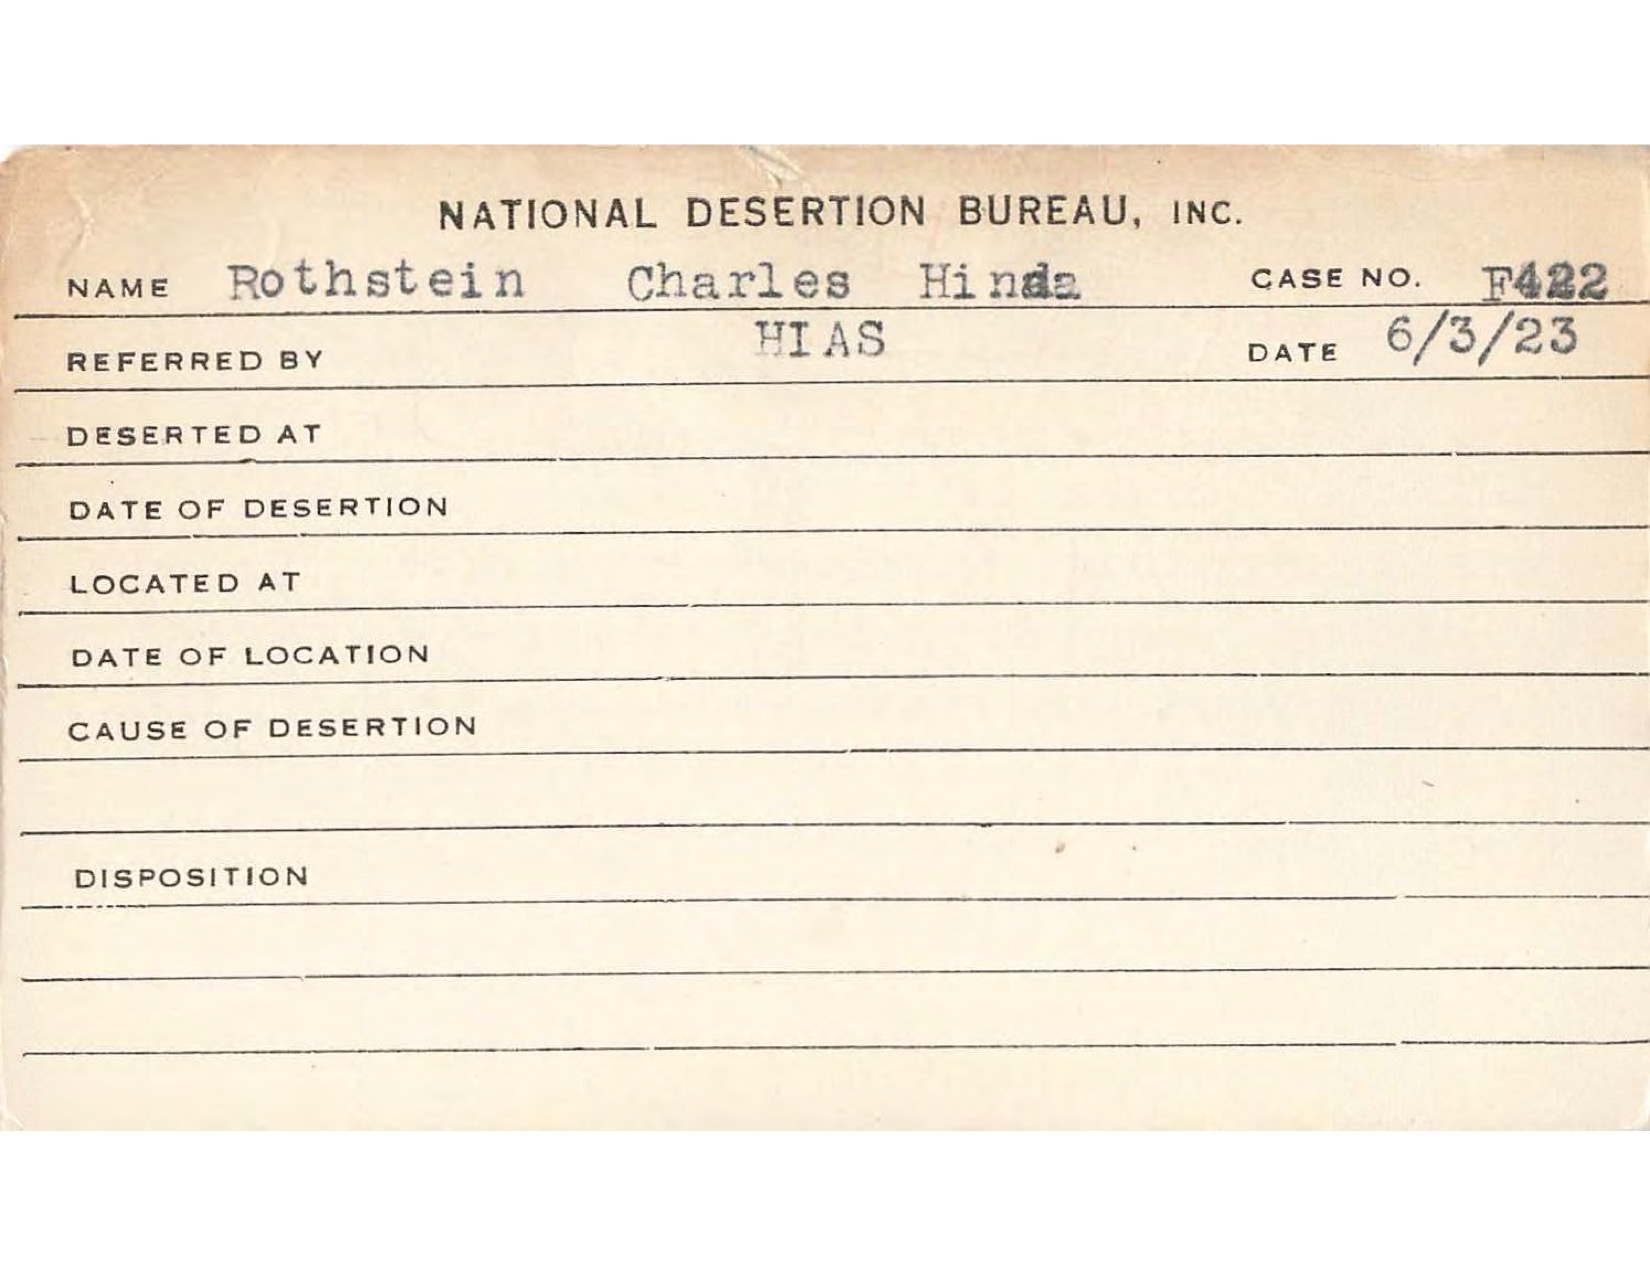 NATIONAL DESERTION BUREAU, INC.
NAME Rothstein Charles Hinda CASE NO. F422
REFERRED BY HIAS DATE 6/3/23
DESERTED AT
DATE OF DESERTION
LOCATED AT
DATE OF LOCATION
CAUSE OF DESERTION
DISPOSITION